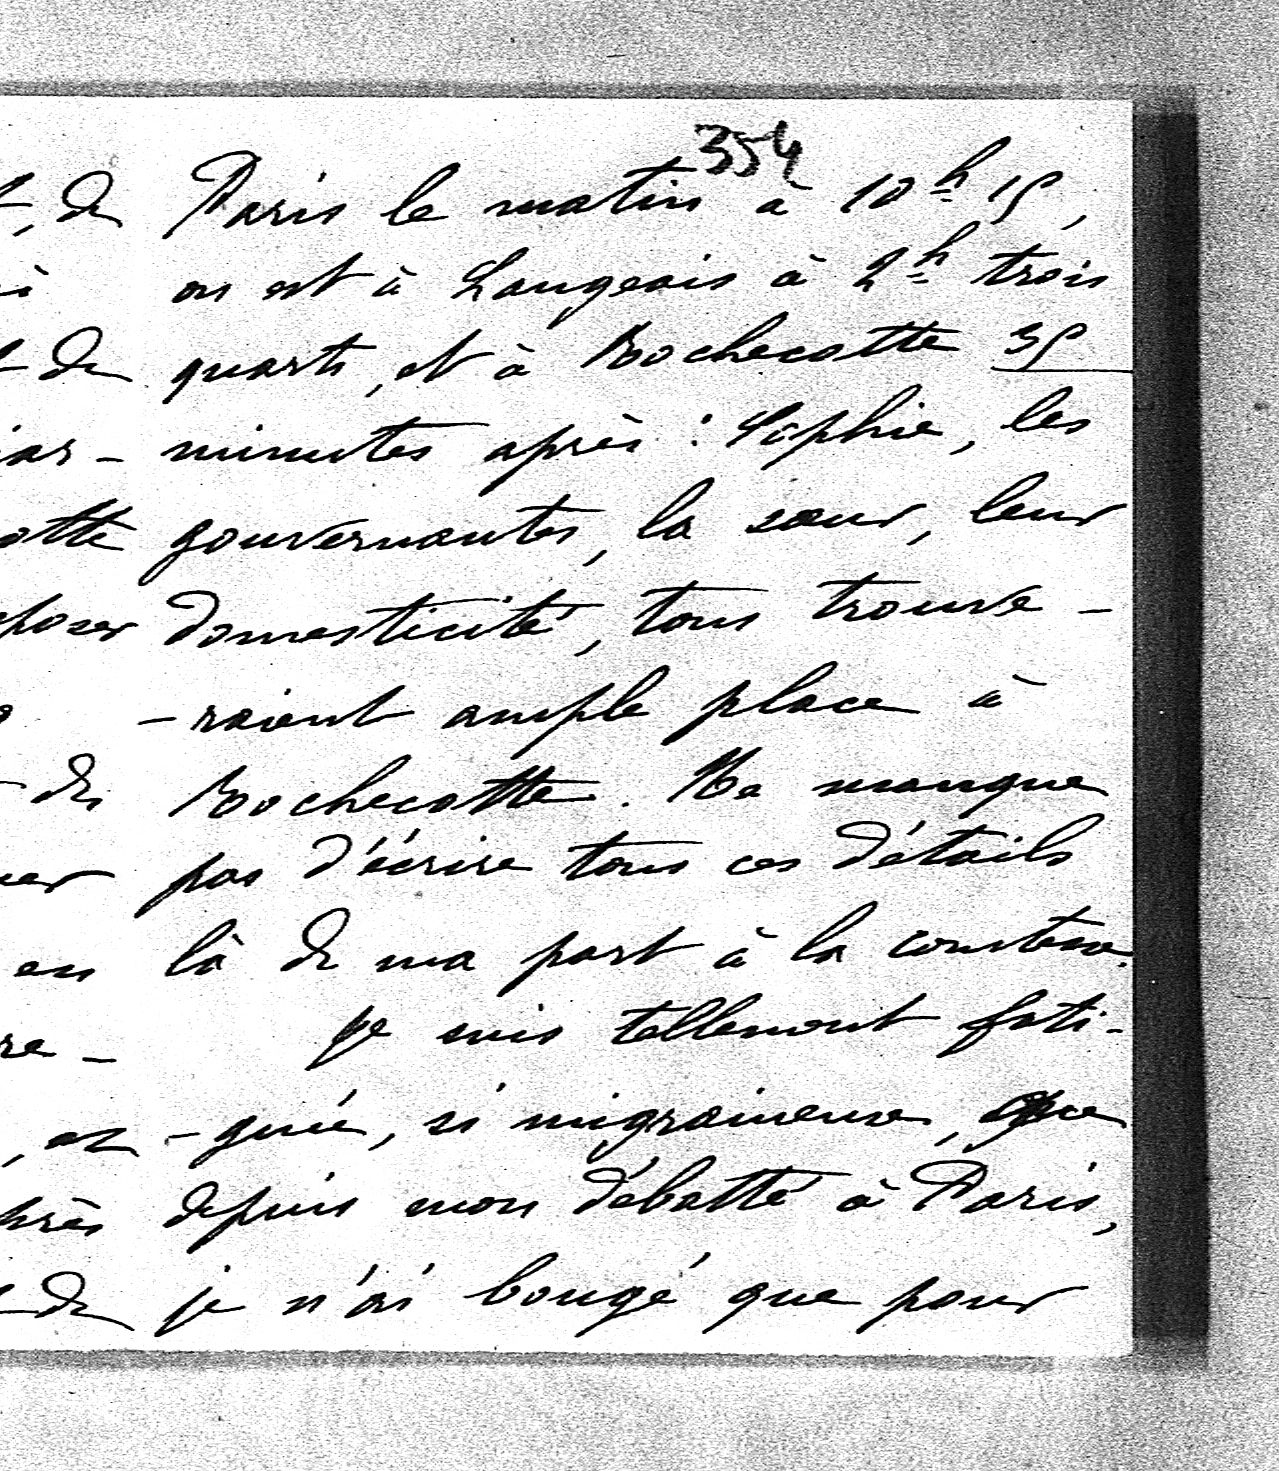 354
Paris le matin à 10h 15,
on est à Langeais à 2h trois
quarts, et à Rochecotte 35
minutes après : Sophie, les
gouvernantes, la sœur, leur
domesticité, tous trouve-
-raient ample place à
Rochecotte. Ne manque
pas d'écrire tous ces détails
là de ma part à la comtesse.
Je suis tellement fati-
-guée, si migraineuse, que
depuis mon débotté à Paris,
je n'ai bougé que pour